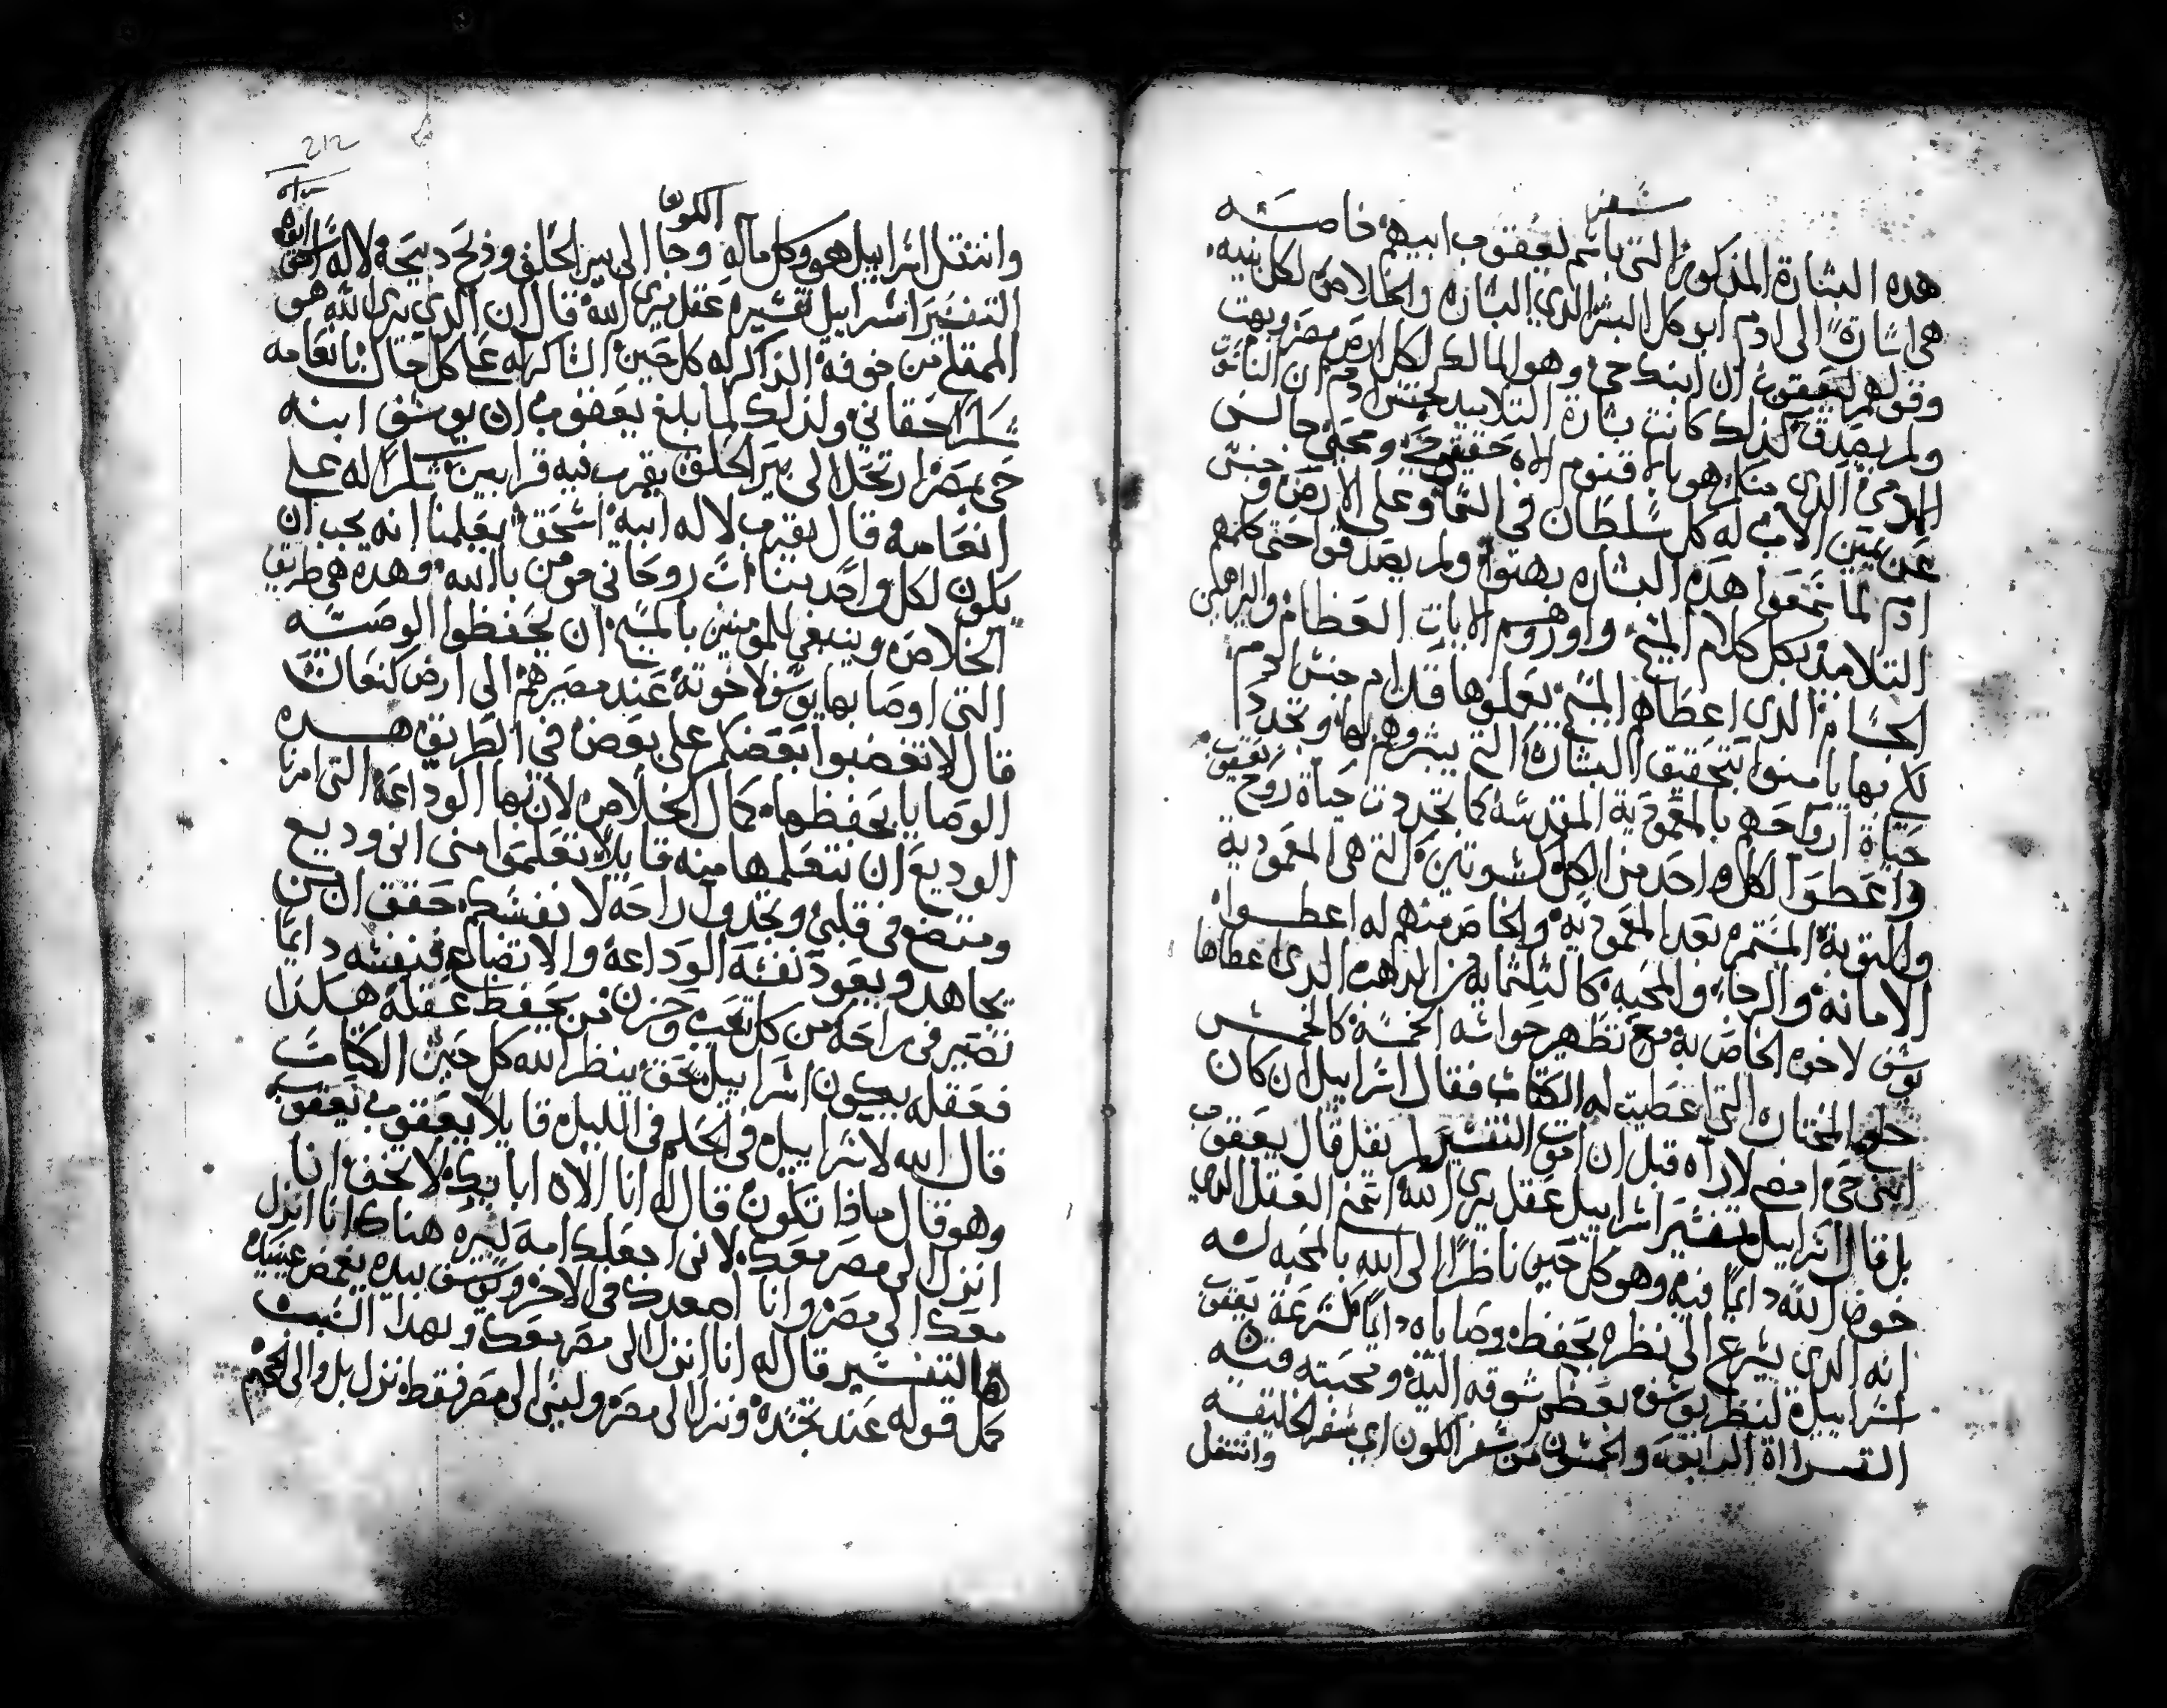 سفر
هده البشارة المذكورة التي باسم ليعقوب ابيهم خاصه
هى اشارة الى ادم ابو كل البشر الدي البشاره والخلاص لكل بنيه
وقولهم ليعقوب ان ابنك حي وهو المالك لكل ارض مصر وبهت
ولم يصدق كذلك كانت بشارة التلاميد لجنس ادم ان الناسوت
الادمي الدي هو بالاقنوم الاه حقيقي ومحيى جالس
عن يمين الاب له كل سلطان في السما وعلى الارض وجنس
ادم لما سمعوا هده البشاره بهتوا ولم يصدقوا حتى كلمهم
التلاميد بكل كلام المسيح واوروهم الايات العظام والبراهين
الجسام الدي اعطاهم المسيح يعملوها قدام جنس ادم
لكي بها يامنوا بتحقيق البشارة التي يبشروهم بها وتجدد
حياة ارواحهم بالمعمودية المقدسه كما تجددت حياة روح يعقوب
واعطوا لكل واحد من الكل كسوتين التي هى المعمودية
والتوبة المستمره بعد المعمودية والخاص منهم له اعطوا
الامانة والرجا والمحبه كالثلثماية من الدهب الدي اعطاها
يوسف لاخوه الخاص به مع تطهير حواسه الخمسة كالخمس
حلل المختاره التي اعطيت له الكتاب فقال اسراييل ان كان
ابني حي امضي لاراه قبل ان اموت التفسير لم يقل قال يعقوب
بل قال اسراييل تفسير اسراييل عقل يرى الله اتخذ العقل الدي
خوف الله دايما فيه وهو كل حين ناظرا الى الله بالمحبه له
انه الدي يسرع الى نظره بحفظ وصاياه دايما كسرعة يعقوب
اسراييل لينظر يوسف بعظم شوقه اليه ومحبته فيه
القسراة الرابعة والخمسون من سفر الكون اي سفر الخليقه
وانتقل
212
الكون
وانتقل اسراييل هو وكل ماله وجا الى بير الحلف وذبح دبيحه لاله ابيه اسحق
التفسير اسراييل تفسيره عقل يرى الله قال ان الدي يرى الله هو
الممتلى من خوفه الذاكر له كل حين الشاكر له على كل حال بانعامه
شكرا حقاني ولذلك لما بلغ يعقوب ان يوسف ابنه
حي بمصر ارتحل الى بير الحلف يقرب فيه قرابين شكرا له على
انعامه قال يقرب لاله ابيه اسحق يعلمنا انه يجب ان
يكون لكل واحد مننا اب روحاني مومن بالله وهده هى طريق
الخلاص وينبغي للمومنين بالمسيح ان يحفظوا الوصيه
التي اوصا بها يوسف لاخوته عند مصيرهم الى ارض كنعان
قال لا تغضبوا بعضكم على بعض في الطريق هده
الوصايا بحفظها كمال الخلاص لانها الوداعة التي امرنا
الوديع ان نتعلمها منه قايلا تعلموا مني اني وديع
ومتضع في قلبي وتجدون راحه لانفسكم حقق ان من
يجاهد ويعود نفسه الوداعة والاتضاع فنفسه دايما
تصير في راحة من كل تعب وحزن من يحفظ عقله هكذا
فعقله يكون اسراييل بحق ينظر الله كل حين الكتاب
قال الله لاسراييل في الحلم في الليل قايلا يعقوب يعقوب
وهو قال ماذا تكون قال له انا الاه ابايك لا تخف انا
انزل الى مصر معك لاني اجعلك امة كبيره هناك انا انزل
معك الى مصر وانا اصعدك في الاخر ويوسف بيده يغمض عينيك
التفسير قال له انا انزل الى مصر معك وبهدا السبب
كمل قوله عند تجسده ونزل الى مصر وليس الى مصر فقط نزل بل والى الجحيم